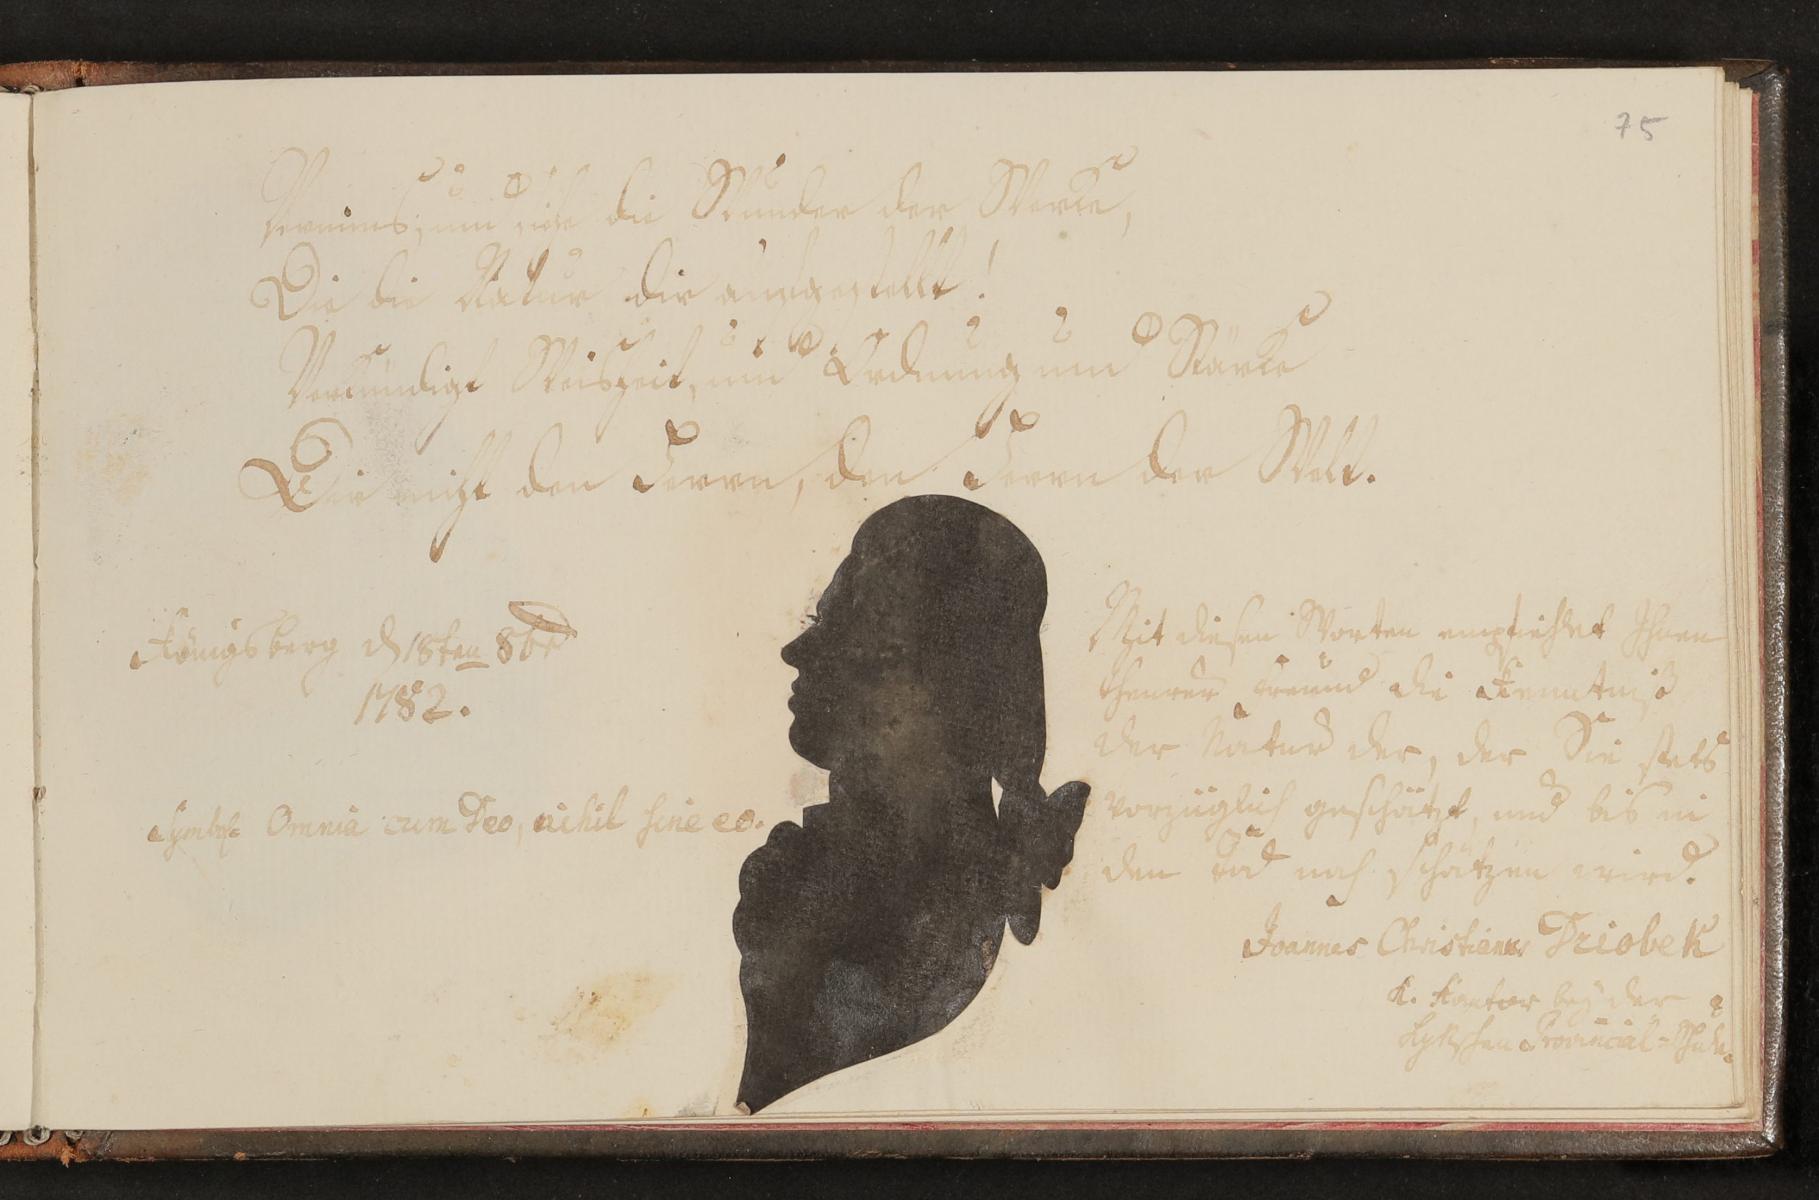 75
Vernims, und siehe die Wunder der Werke,
Die die Natur dir aufgestellt!
Verkündigt Weisheit, und Ordnung und Stärke
Dir nicht den Herrn, den Herrn der Welt.
Königsberg d 18ten 8br
1782.
Symb: Omnia cum Deo, nihil sine eo.
Mit diesen Worten empfiehlet Ihnen
theurer Freund die Kenntniß
der Natur der, der Sie stets
vorzüglich geschätzt, und bis in
den Tod noch schätzen wird.
Joannes Christianus Dziobek
K. Kantor bey der
Lykschen Provincial-Schule.